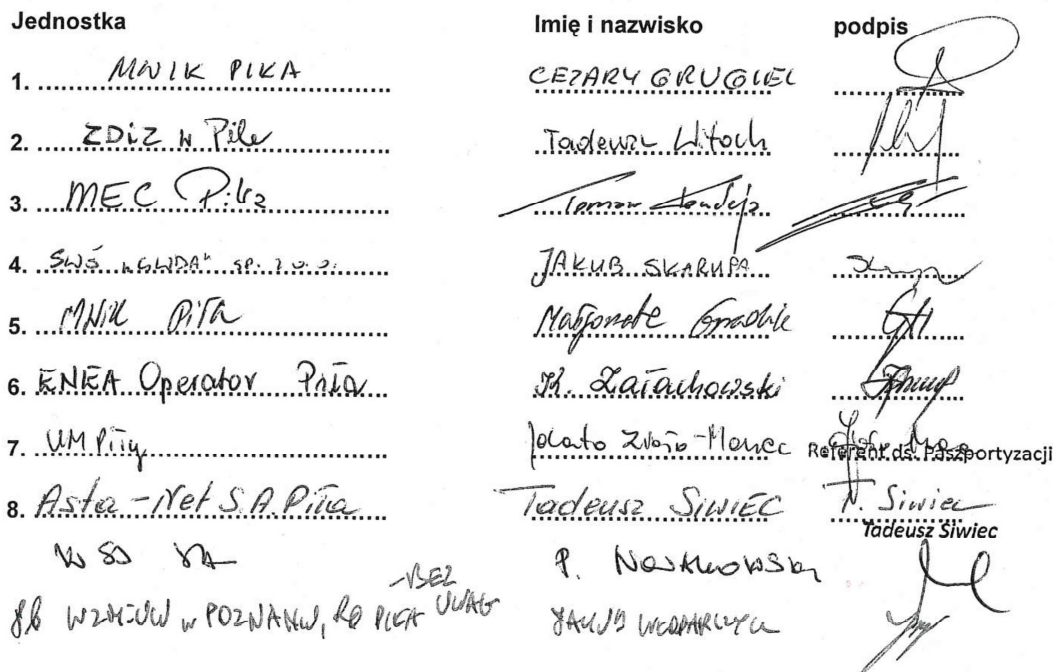 Jednostka Imię i nazwisko podpis
1. MWIK PIŁA CEZARY GRUGIEL
2. ZDiZ w Pile Tadeusz Witoch
3. MEC Piła Tomasz
4. SWŚ "GWDA" sp. z o.o. JAKUB SKARUPA
5. MWiK Piła Małgorzata
6. ENEA Operator Piła K. Załachowski
7. UM Piły Jolanta Referent ds. Paszportyzacji
8. Asta-Net S.A. Piła Tadeusz SIWIEC T. Siwiec
Tadeusz Siwiec
P. NOWAKOWSKI
- BEZ UWAG
W POZNANIU, PIŁA JAKUB WŁODARCZYK